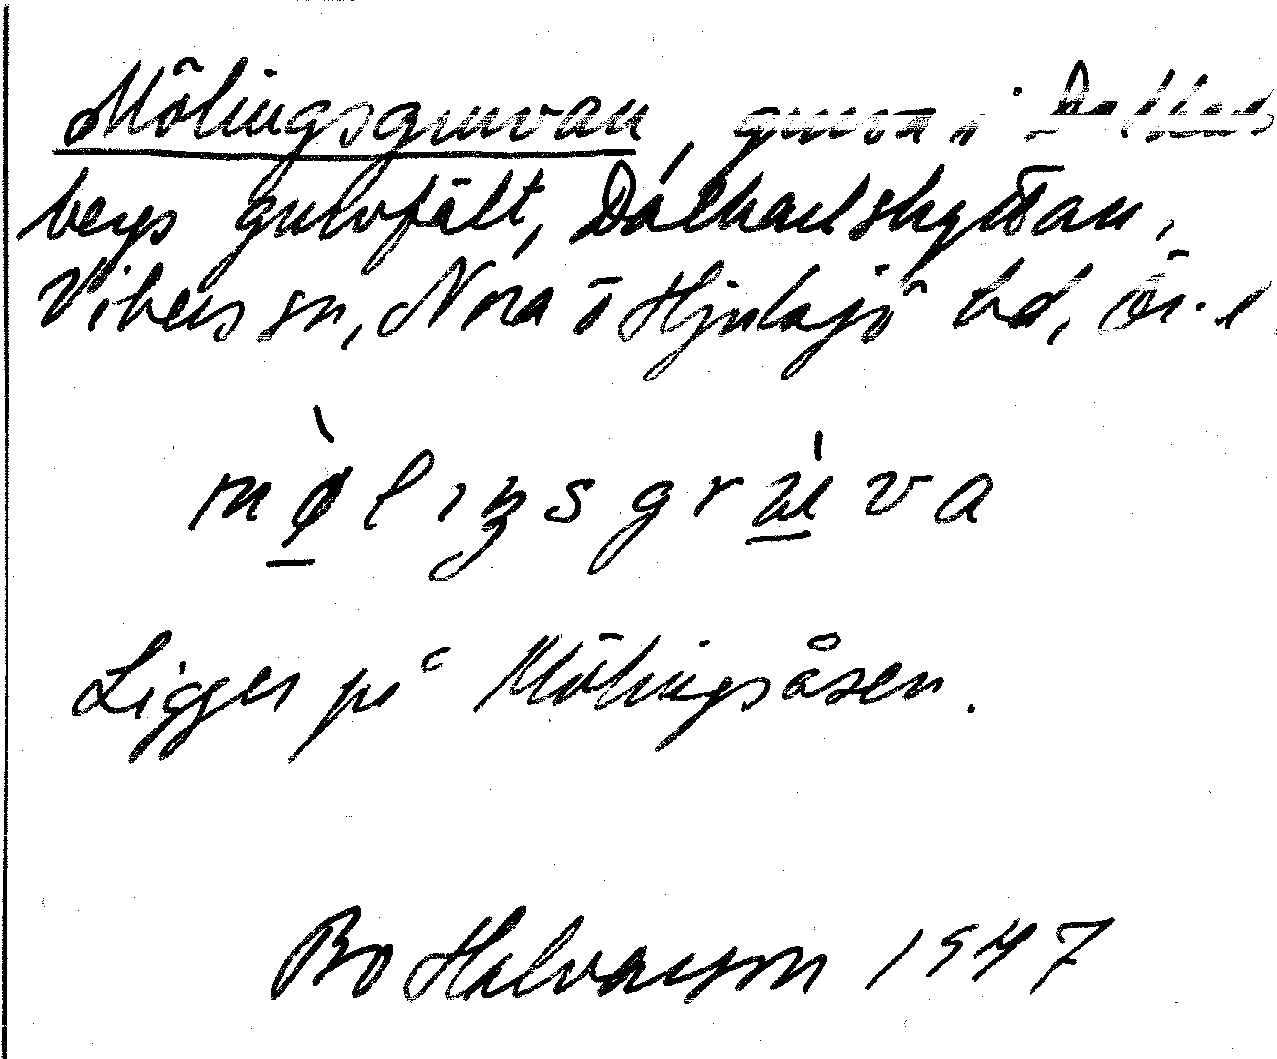 Mölingsgruvan, gruva i Dalkarls
bergs gruvfält, Dalkarlshyttan,
Vikers sn, Nora o Hjulsjö bd, Ör. l
mø̀liŋsgrùva
Ligger på Mölingsåsen.
Bo Halvarson 1947